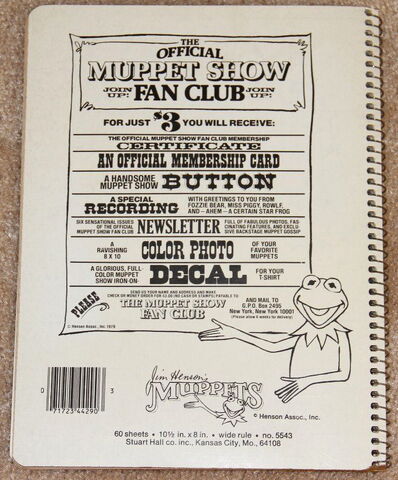 THE
OFFICIAL
MUPPET SHOW
JOIN UP! FAN CLUB JOIN UP!
FOR JUST $3 YOU WILL RECEIVE:
THE OFFICIAL MUPPET SHOW FAN CLUB MEMBERSHIP
CERTIFICATE
AN OFFICIAL MEMBERSHIP CARD
A HANDSOME MUPPET SHOW BUTTON
A SPECIAL RECORDING WITH GREETINGS TO YOU FROM FOZZIE BEAR, MISS PIGGY, ROWLF, AND - AHEM - A CERTAIN STAR FROG
SIX SENSATIONAL ISSUES OF THE OFFICIAL MUPPET SHOW FAN CLUB NEWSLETTER FULL OF FABULOUS PHOTOS, FASCINATING FEATURES, AND EXCLUSIVE BACKSTAGE MUPPET GOSSIP
A RAVISHING 8 X 10 COLOR PHOTO OF YOUR FAVORITE MUPPETS
A GLORIOUS, FULL-COLOR MUPPET SHOW IRON-ON DECAL FOR YOUR T-SHIRT
PLEASE
SEND US YOUR NAME AND ADDRESS AND MAKE
CHECK OR MONEY ORDER FOR $3.00 (NO CASH OR STAMPS) PAYABLE TO
THE MUPPET SHOW
FAN CLUB
AND MAIL TO
G.P.O. Box 2495
New York, New York 10001
(Please allow 6 weeks for delivery)
© Henson Assoc., Inc. 1978
0 71723 44290 3
Jim Henson's
MUPPETS
© Henson Assoc., Inc.
60 sheets • 10½ in. x 8 in. • wide rule • no. 5543
Stuart Hall co. inc., Kansas City, Mo., 64108